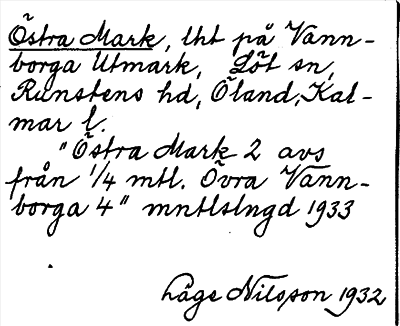 Östra Mark, lht på Vann-
borga Utmark, Löt sn,
Runstens hd, Öland, Kal-
mar l.
"Östra Mark 2 avs
från 1/4 mtl. Övra Vann-
borga 4" mntlslngd 1933
Låge Nilsson 1932